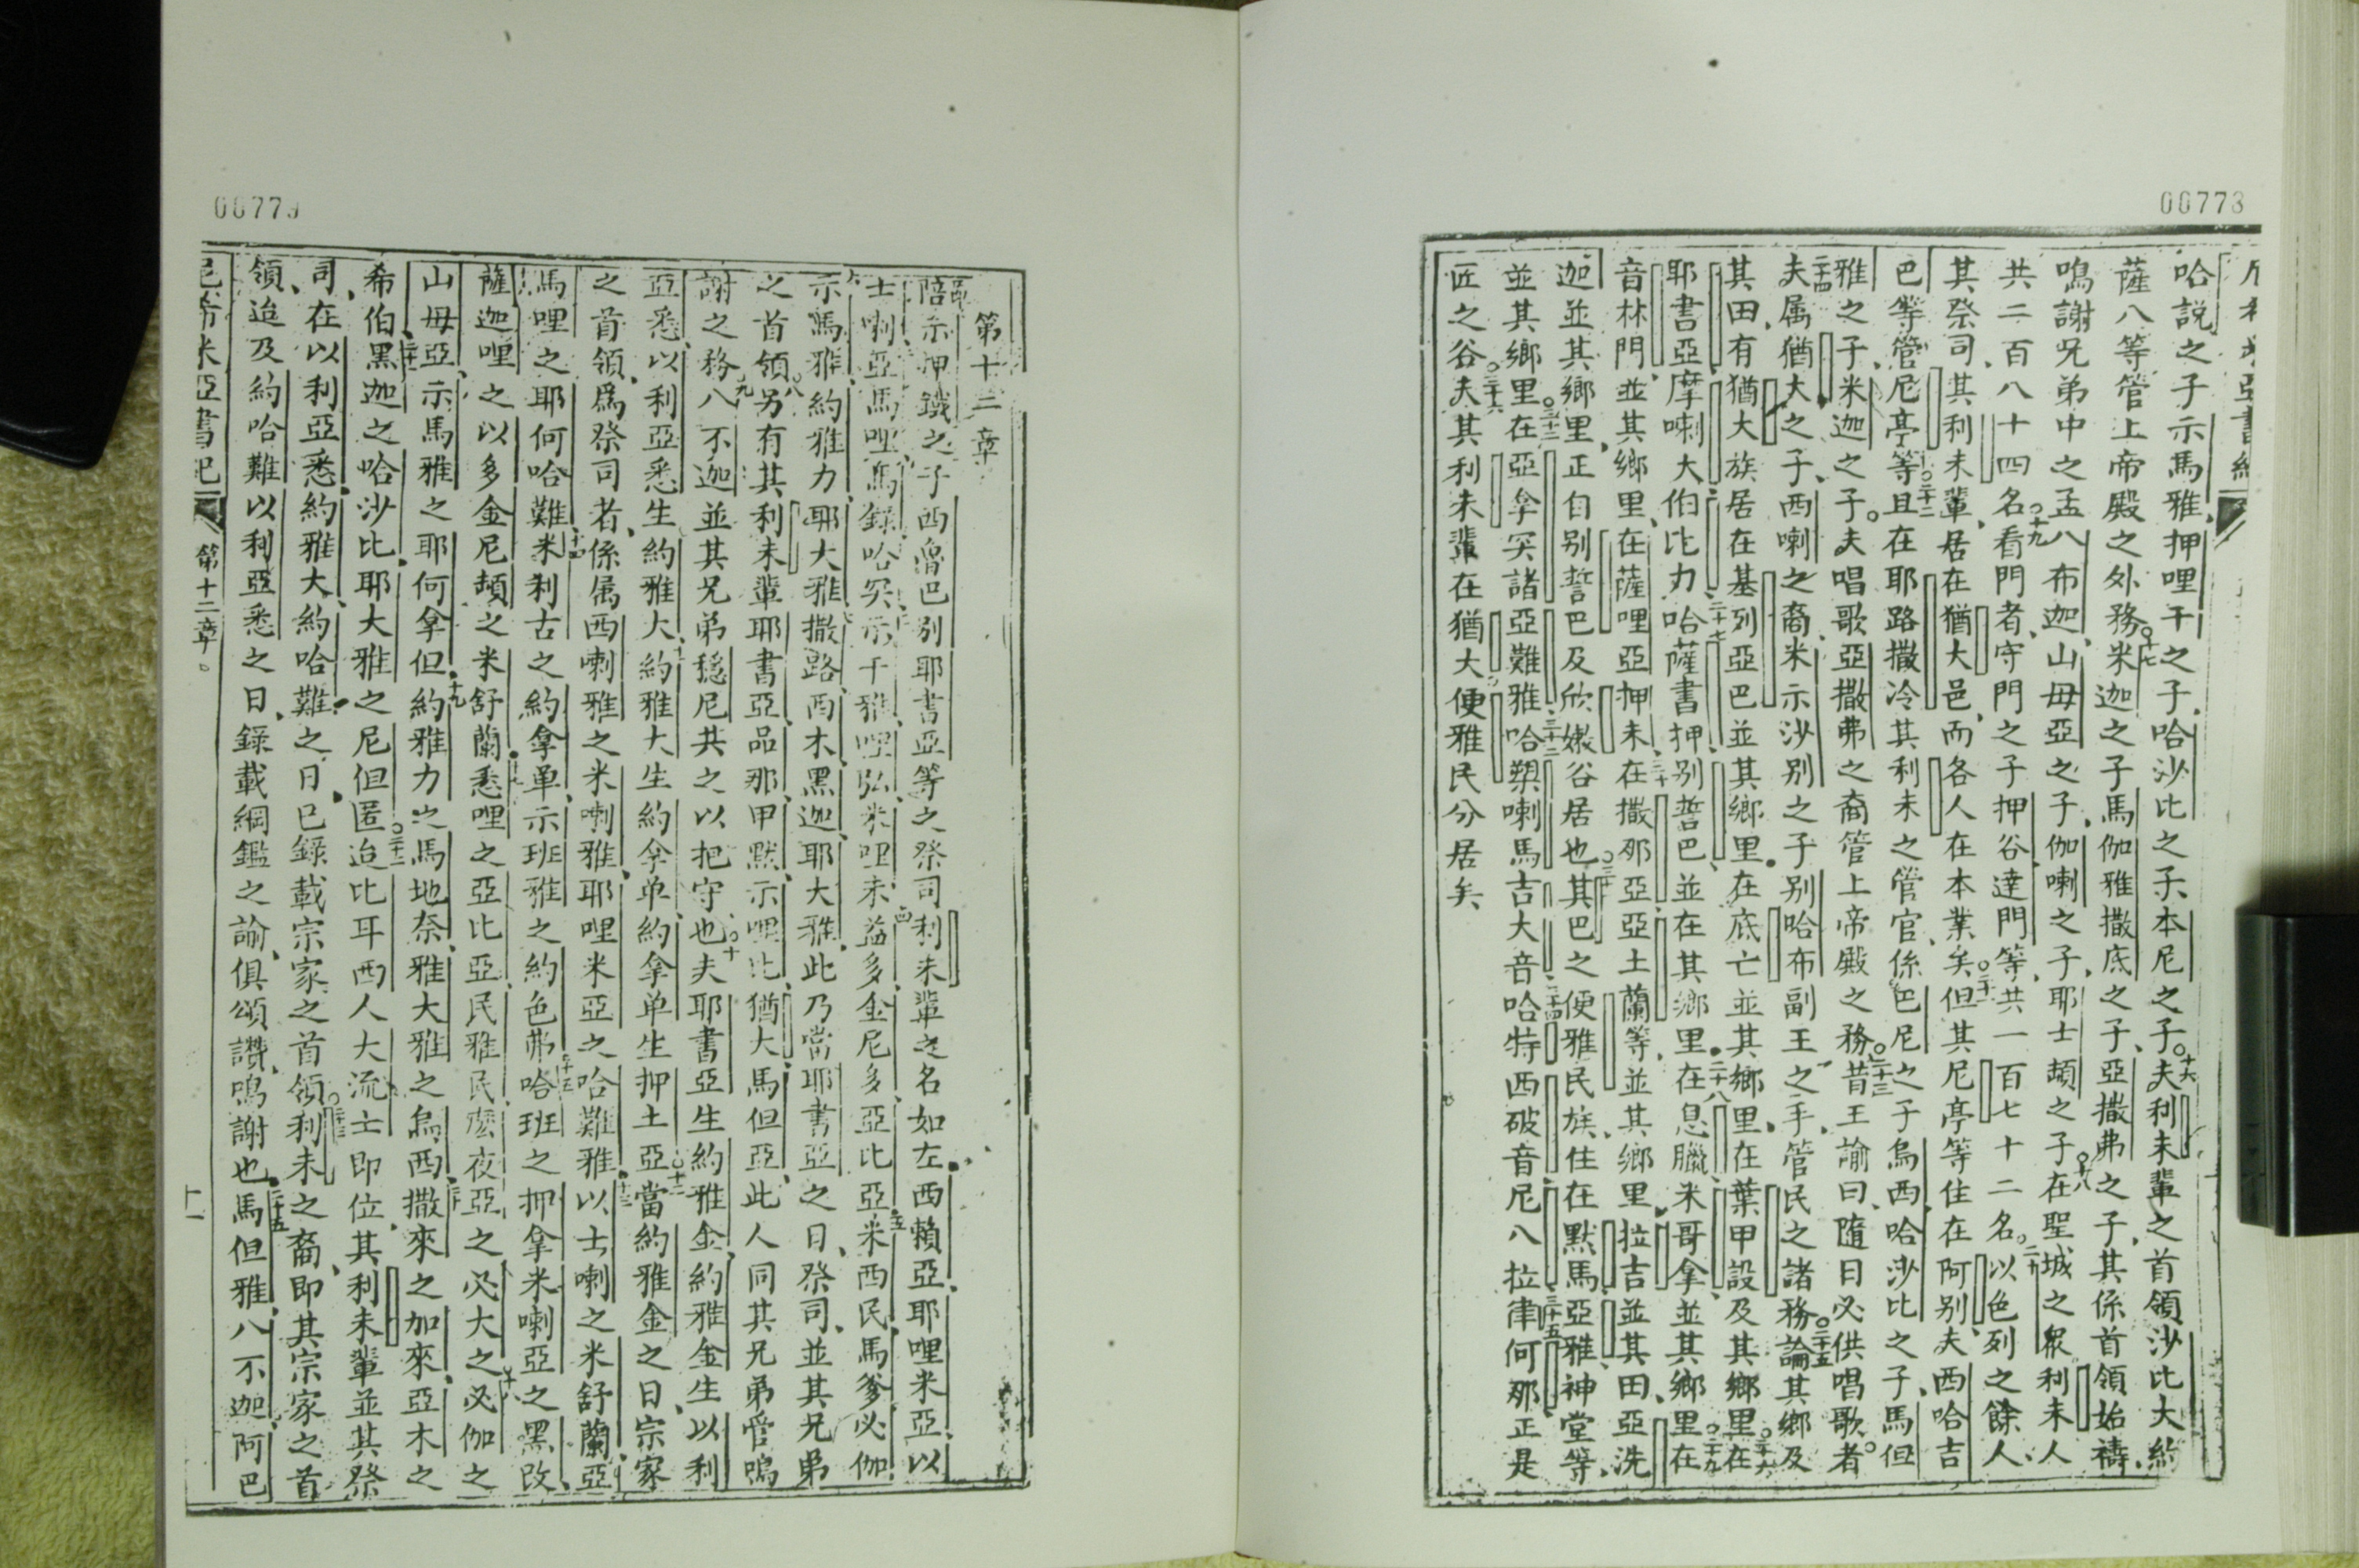 00778
哈説之子示馬雅押哩干之子哈沙比之子本尼之子夫利未輩之首領沙比大約
薩八等管上帝殿之外務米迦之子馬伽雅撒底之子亞撒弗之子其係首領始禱
鳴謝兄弟中之孟八布迦山毋亞之子伽喇之子耶士頡之子在聖城之衆利未人
共二百八十四名看門者守門之子押谷達門等共一百七十二名以色列之餘人
其祭司其利未輩居在猶大邑而各人在本業矣但其尼亭等住在阿别夫西哈吉
巴等管尼亭等且在耶路撒冷其利未之管官係巴尼之子烏西哈沙比之子馬但
雅之子米迦之子夫唱歌亞撒弗之裔管上帝殿之務昔王諭曰隨日必供唱歌者
夫属猶大之子西喇之裔米示沙别之子别哈布副王之手管民之諸務論其鄉及
其田有猶大族居在基列亞巴並其鄉里在底亡並其鄉里在葉甲設及其鄉里在
耶書亞摩喇大伯比力哈薩書押别誓巴並在其鄉里在息臘米哥拿並其鄉里在
音林門並其鄉里在薩哩亞押未在撒那亞亞土蘭等並其鄉里拉吉並其田亞洗
迦並其鄉里正自别誓巴及欣嫩谷居也其巴之便雅民族住在默馬亞雅神堂等
並其鄉里在亞拿突諸亞難雅哈槊喇馬吉大音哈特西破音尼八拉律何那正是
匠之谷夫其利未輩在猶大便雅民分居矣
00779
第十二章
陪示押鐵之子西魯巴别耶書亞等之祭司利未輩之名如左西賴亞耶哩米亞以
士喇亞馬哩馬錄哈突示干雅哩弘米哩未益多金尼多亞比亞米西民馬爹必伽
示馬雅約雅力耶大雅撒路西木黑迦耶大雅此乃當耶書亞之日祭司並其兄弟
之首領另有其利未輩耶書亞品那甲默示哩比猶大馬但亞此人同其兄弟管鳴
謝之務八不迦並其兄弟穩尼共之以把守也夫耶書亞生約雅金約雅金生以利
亞悉以利亞悉生約雅大約雅大生約拿单約拿单生押土亞當約雅金之日宗家
之首領爲祭司者係属西喇雅之米喇雅耶哩米亞之哈難雅以士喇之米舒蘭亞
馬哩之耶何哈難米利古之約拿单示班雅之約色弗哈班之押拿米喇亞之黑改
薩迦哩之以多金尼頡之米舒蘭悉哩之亞比亞民雅民麽夜亞之必大之必伽之
山毋亞示馬雅之耶何拿但約雅力之馬地奈雅大雅之烏西撒來之加來亞木之
希伯黑迦之哈沙比耶大雅之尼但匿迨比耳西人大流士即位其利未輩並其祭
司在以利亞悉約雅大約哈難之日已錄載宗家之首領利未之裔即其宗家之首
領迨及約哈難以利亞悉之日錄載綱鑑之諭俱頌讚鳴謝也馬但雅八不迦阿巴
第十二章
十一